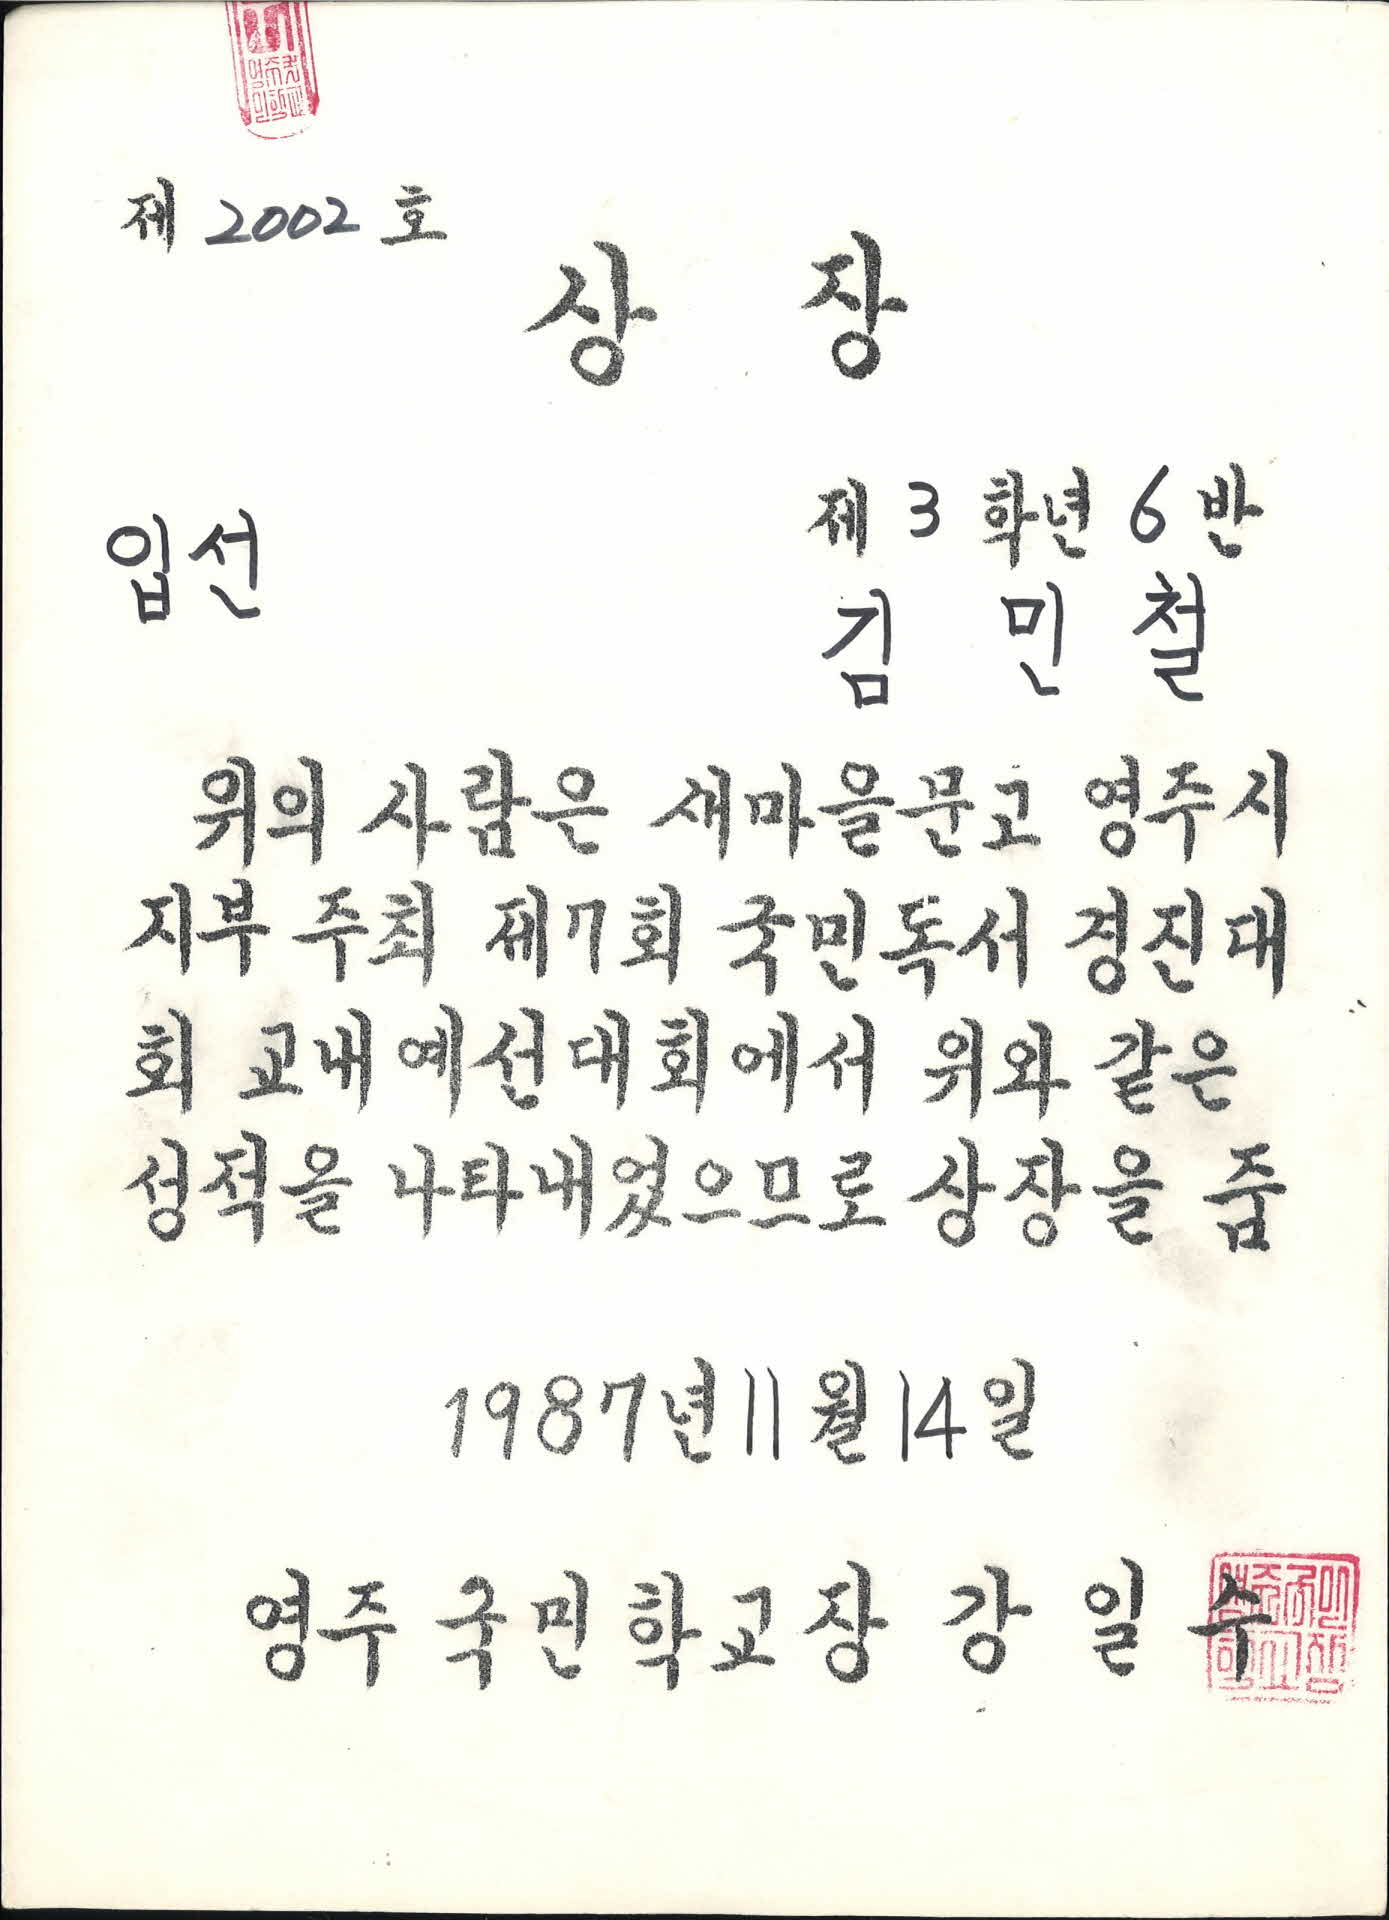 제 2002 호
상 장
제 3 학년 6 반
입선
김 민 철
위의 사람은 새마을문고 영주시
지부 주최 제7회 국민독서 경진대
회 교내예선대회에서 위와 같은
성적을 나타내었으므로 상장을 줌
1987년 11월 14일
영주 국민학교장 강 일 수